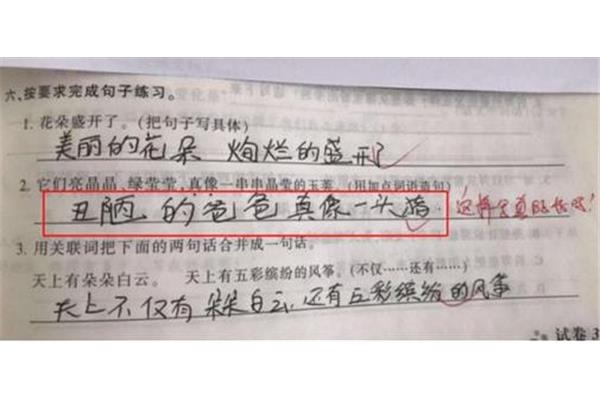 六、按要求完成句子练习。
1. 花朵盛开了。(把句子写具体)
美丽的花朵 绚烂的盛开了
2. 它们亮晶晶、绿莹莹、真像一串串晶莹的玉葵。(用加点词语造句)
丑陋的爸爸真像一头猪
这样写真的好吗?
3. 用关联词把下面的两句话合并成一句话。
天上有朵朵白云。 天上有五彩缤纷的风筝。(不仅……还有……)
天上不仅有朵朵白云,还有五彩缤纷的风筝
试卷3